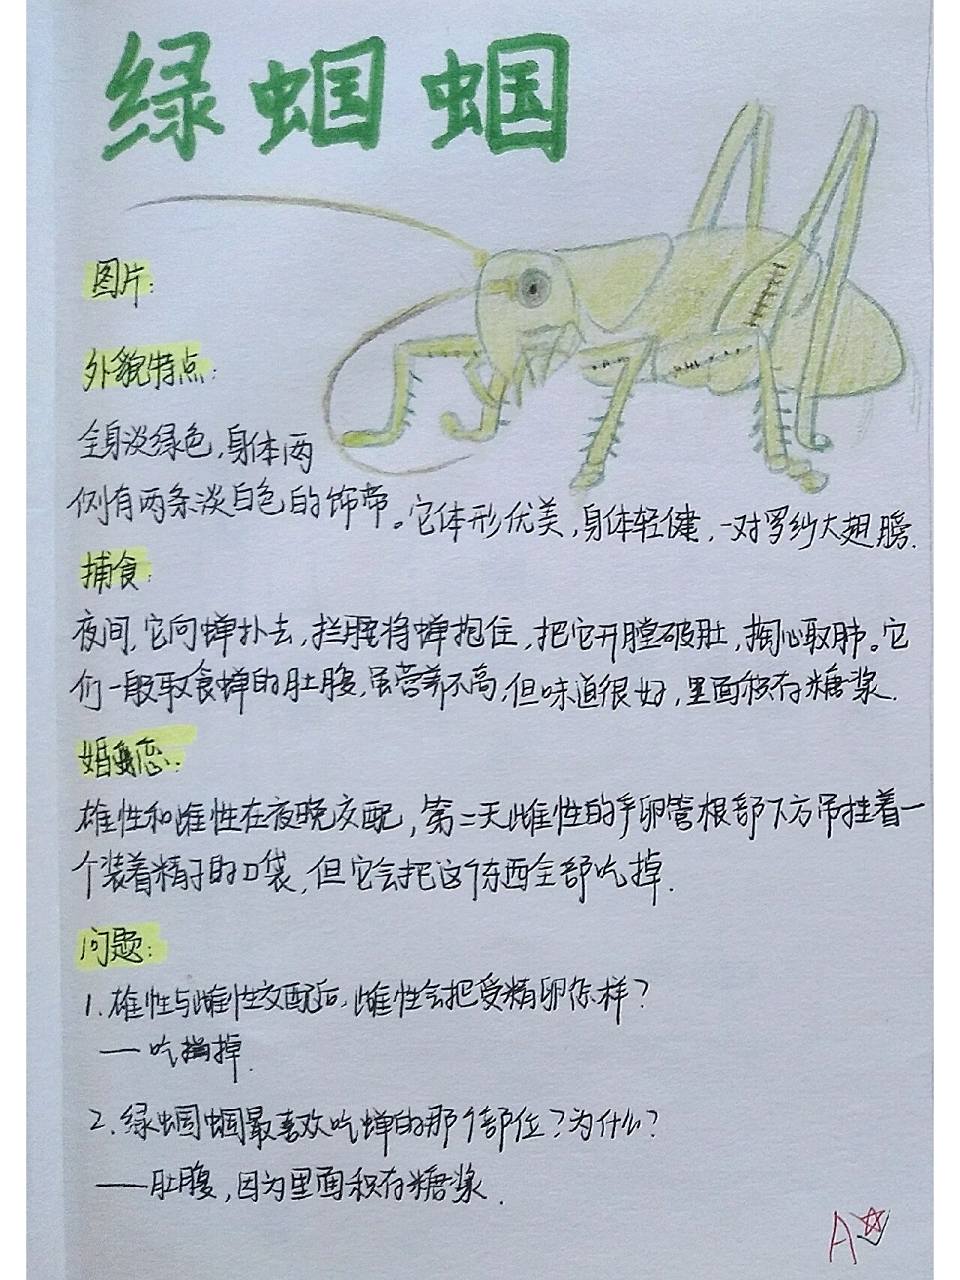 绿蝈蝈
图片:
外貌特点:
全身淡绿色,身体两
侧有两条淡白色的饰带。它体形优美,身体轻健,一对罗纱大翅膀.
捕食:
夜间,它向蝉扑去,拦腰将蝉抱住,把它开膛破肚,掏心取肺。它
们一般取食蝉的肚腹,虽营养不高,但味道很好,里面积存糖浆.
婚恋:
雄性和雌性在夜晚交配,第二天雌性的产卵管根部下方吊挂着一
个装着精子的口袋,但它会把这个东西全部吃掉.
问题:
1.雄性与雌性交配后,雌性会把受精卵怎样?
——吃掉
2.绿蝈蝈最喜欢吃蝉的那个部位?为什么?
——肚腹,因为里面积存糖浆.
A☆